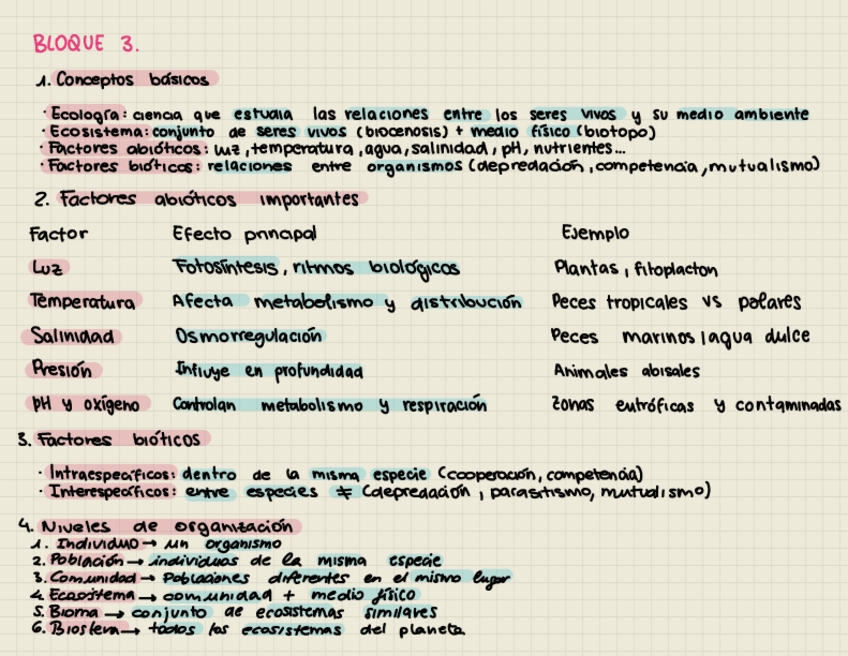 BLOQUE 3.
1. Conceptos básicos
· Ecología: ciencia que estudia las relaciones entre los seres vivos y su medio ambiente
· Ecosistema: conjunto de seres vivos (biocenosis) + medio físico (biotopo)
· Factores abióticos: luz, temperatura, agua, salinidad, pH, nutrientes...
· Factores bióticos: relaciones entre organismos (depredación, competencia, mutualismo)
2. Factores abióticos importantes
Factor Efecto principal Ejemplo
Luz Fotosíntesis, ritmos biológicos Plantas, fitoplacton
Temperatura Afecta metabolismo y distribución Peces tropicales vs polares
Salinidad Osmorregulación Peces marinos/agua dulce
Presión Influye en profundidad Animales abisales
pH y oxígeno Controlan metabolismo y respiración Zonas eutróficas y contaminadas
3. Factores bióticos
· Intraespecíficos: dentro de la misma especie (cooperación, competencia)
· Interespecíficos: entre especies ≠ (depredación, parasitismo, mutualismo)
4. Niveles de organización
1. Individuo → un organismo
2. Población → individuos de la misma especie
3. Comunidad → Poblaciones diferentes en el mismo lugar
4. Ecosistema → comunidad + medio físico
5. Bioma → conjunto de ecosistemas similares
6. Biosfera → todos los ecosistemas del planeta.